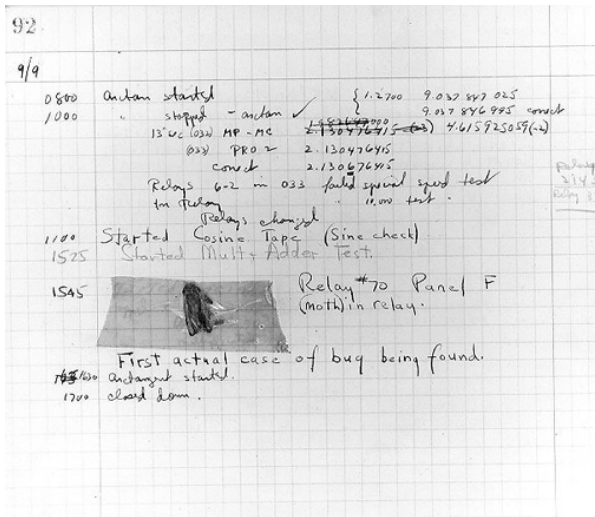 92
9/9
0800 antan started { 1.2700 9.037 847 025
1000 " stopped - antan ✓ 9.037 846 995 conect
13" uc (032) MP - MC 2.130476415 (-3) 4.615925059(-2)
(033) PRO 2 2.130476415
conect 2.130676415
Relays 6-2 in 033 failed special speed test
in Relay " 10.000 test .
Relays changed
1100 Started Cosine Tape (Sine check)
1525 Started Mult + Adder Test.
1545 Relay #70 Panel F
(moth) in relay.
First actual case of bug being found.
1630 antangent started.
1700 closed down .
Relay
2145
Relay 3